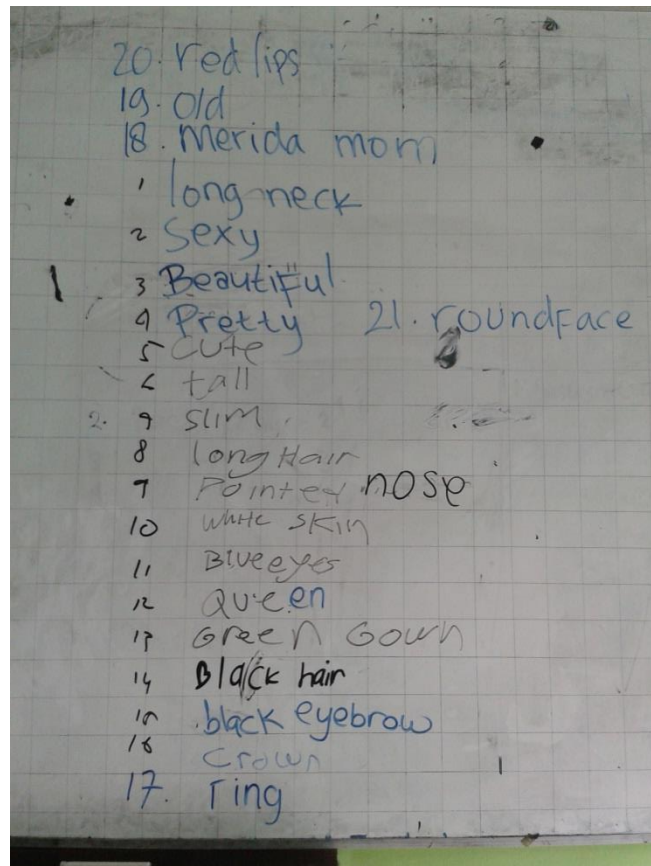 20. red lips
19. old
18. Merida mom
1 long neck
2 Sexy
3 Beautiful
4 Pretty 21. roundFace
5 cute
6 tall
2. 9 SLIM
8 long Hair
9 Pointed nose
10 white skin
11 Blue eyes
12 Queen
13 Green Gown
14 Black hair
15 black eyebrow
16 Crown
17. ring